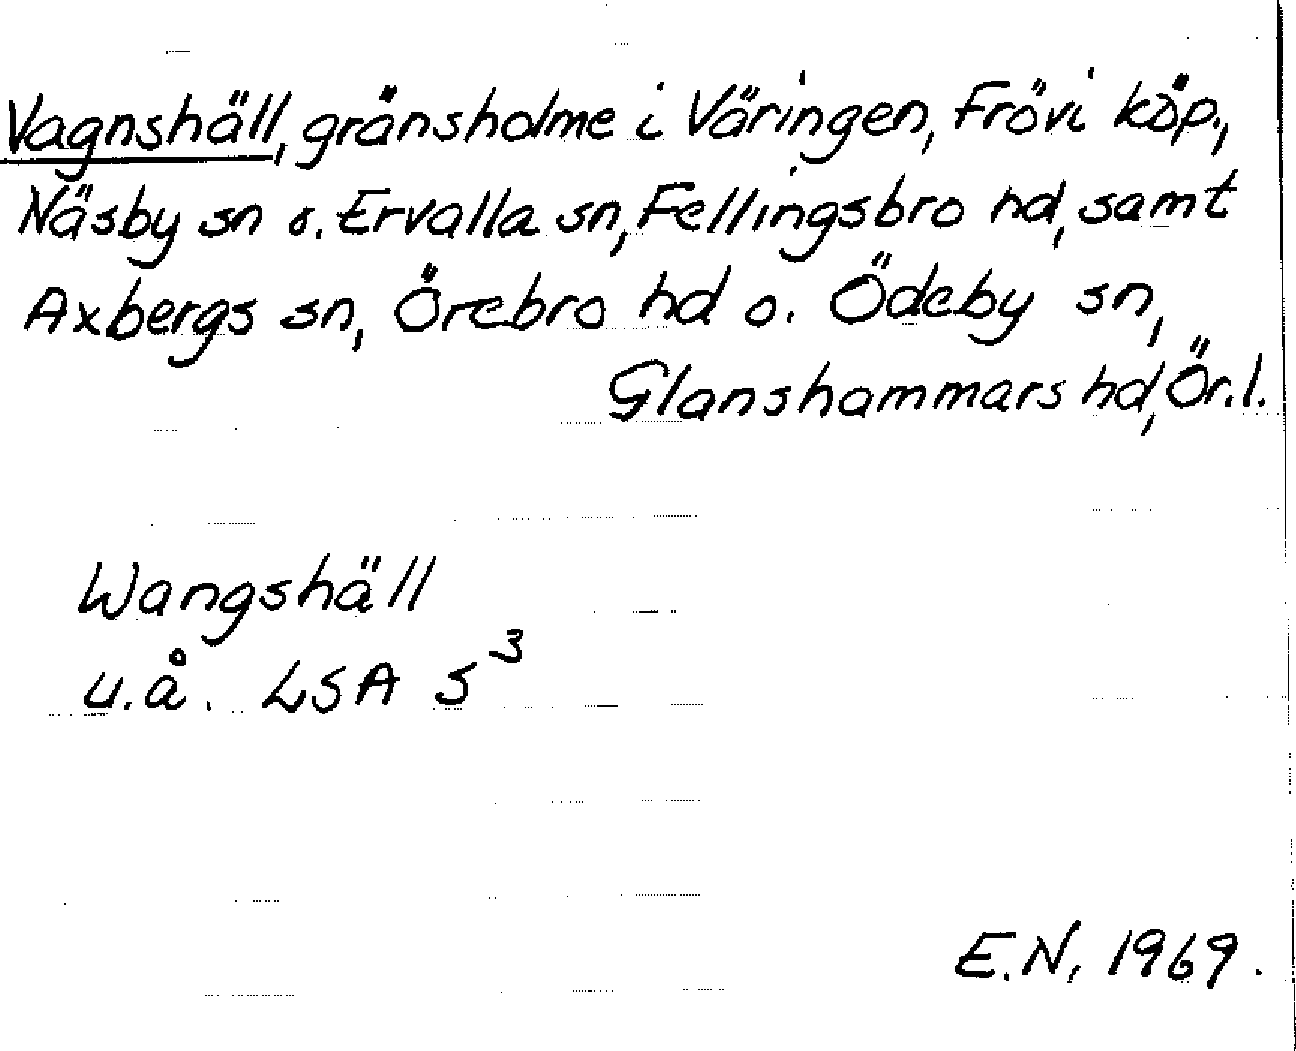 Vagnshäll, gränsholme i Väringen, Frövi köp.,
Näsby sn o. Ervalla sn, Fellingsbro hd, samt
Axbergs sn, Örebro hd o. Ödeby sn,
Glanshammars hd, Ör. l.
Wangshäll
u.å. LSA S³
E.N. 1969.